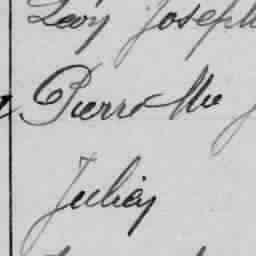 Lévy Joseph
Pierre Me
Julien